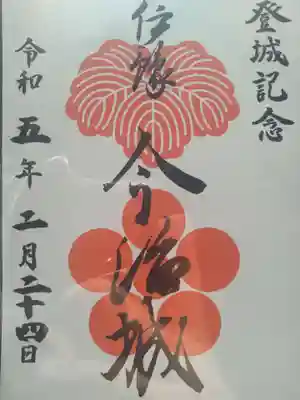 登城記念
伊豫
今治城
令和五年二月二十四日